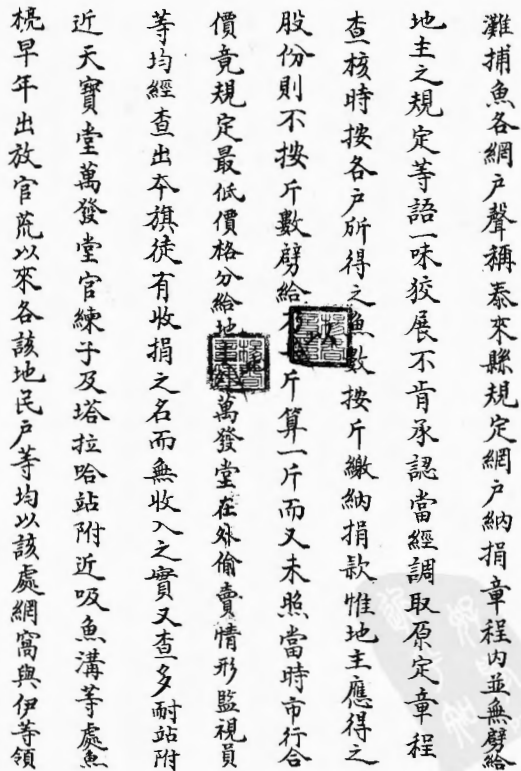 灘捕魚各網戶聲稱泰來縣規定網戶納捐章程內並無劈給
地主之規定等語一味狡展不肯承認當經調取原定章程
查核時按各戶所得之魚數按斤繳納捐款惟地主應得之
股份則不按斤數劈給 斤算一斤而又未照當時市行合
價竟規定最低價格分給地 萬發堂在外偷賣情形監視員
等均經查出本旗徒有收捐之名而無收入之實又查多耐站附
近天寶堂萬發堂官練子及塔拉哈站附近吸魚溝等處魚
梡早年出放官荒以來各該地民戶等均以該處網窩與伊等領